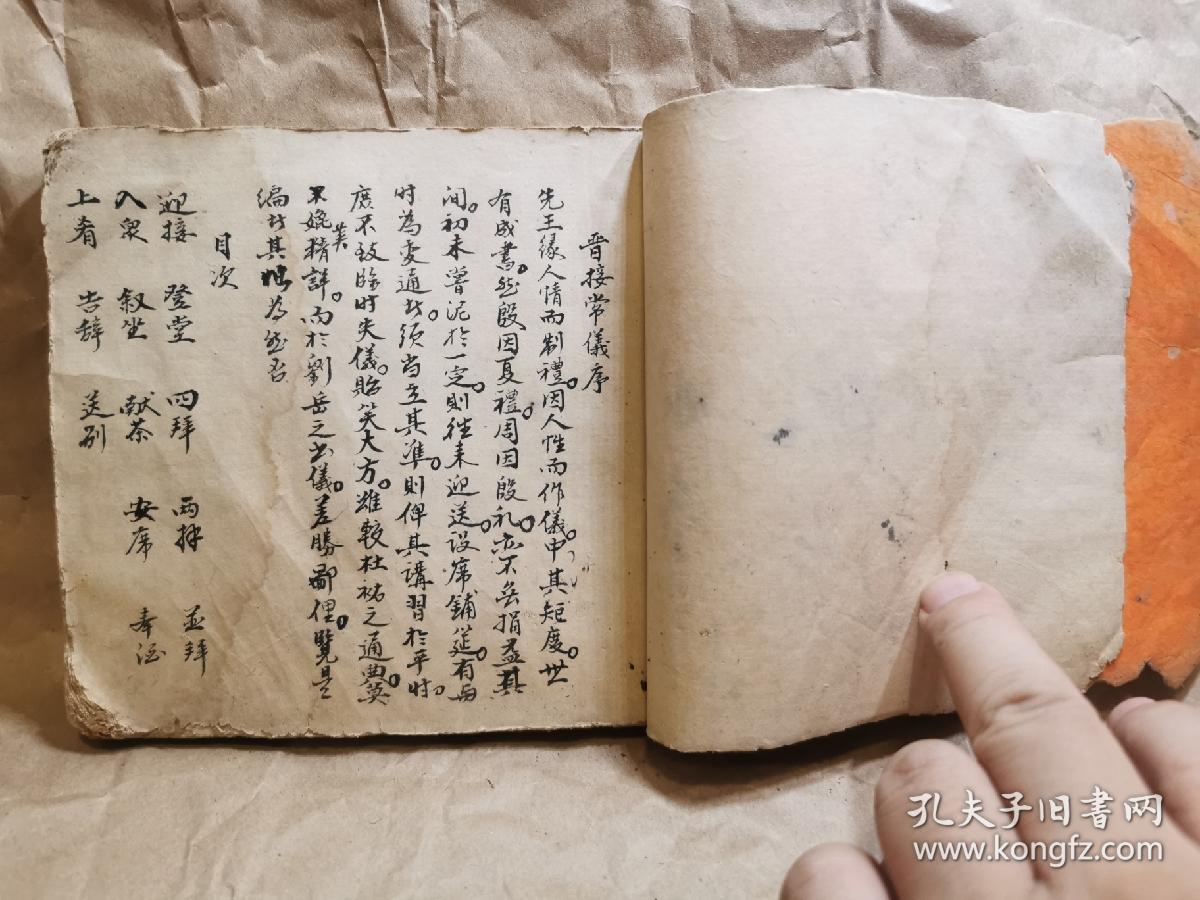 晋接常儀序
先王緣人情而制禮。因人性而作儀。中其矩度。世
有成書。然殷因夏禮。周因殷礼。亦不無損益其
间。初未嘗泥於一定。則往来迎送。设席鋪筵。有因
时為变通。於须當立其準。則俾其講習於平时。
庶不致臨时失儀。貽笑大方。雖較杜祐之通典。莫
美
精詳。而於劉岳之書儀。差勝鄙俚。覽是
編於其為然否
目次
迎接 登堂 四拜 两拜 並拜
入泉 叙坐 献茶 安席 奉酒
上肴 告辞 送别
孔夫子旧书网
www.kongfz.com